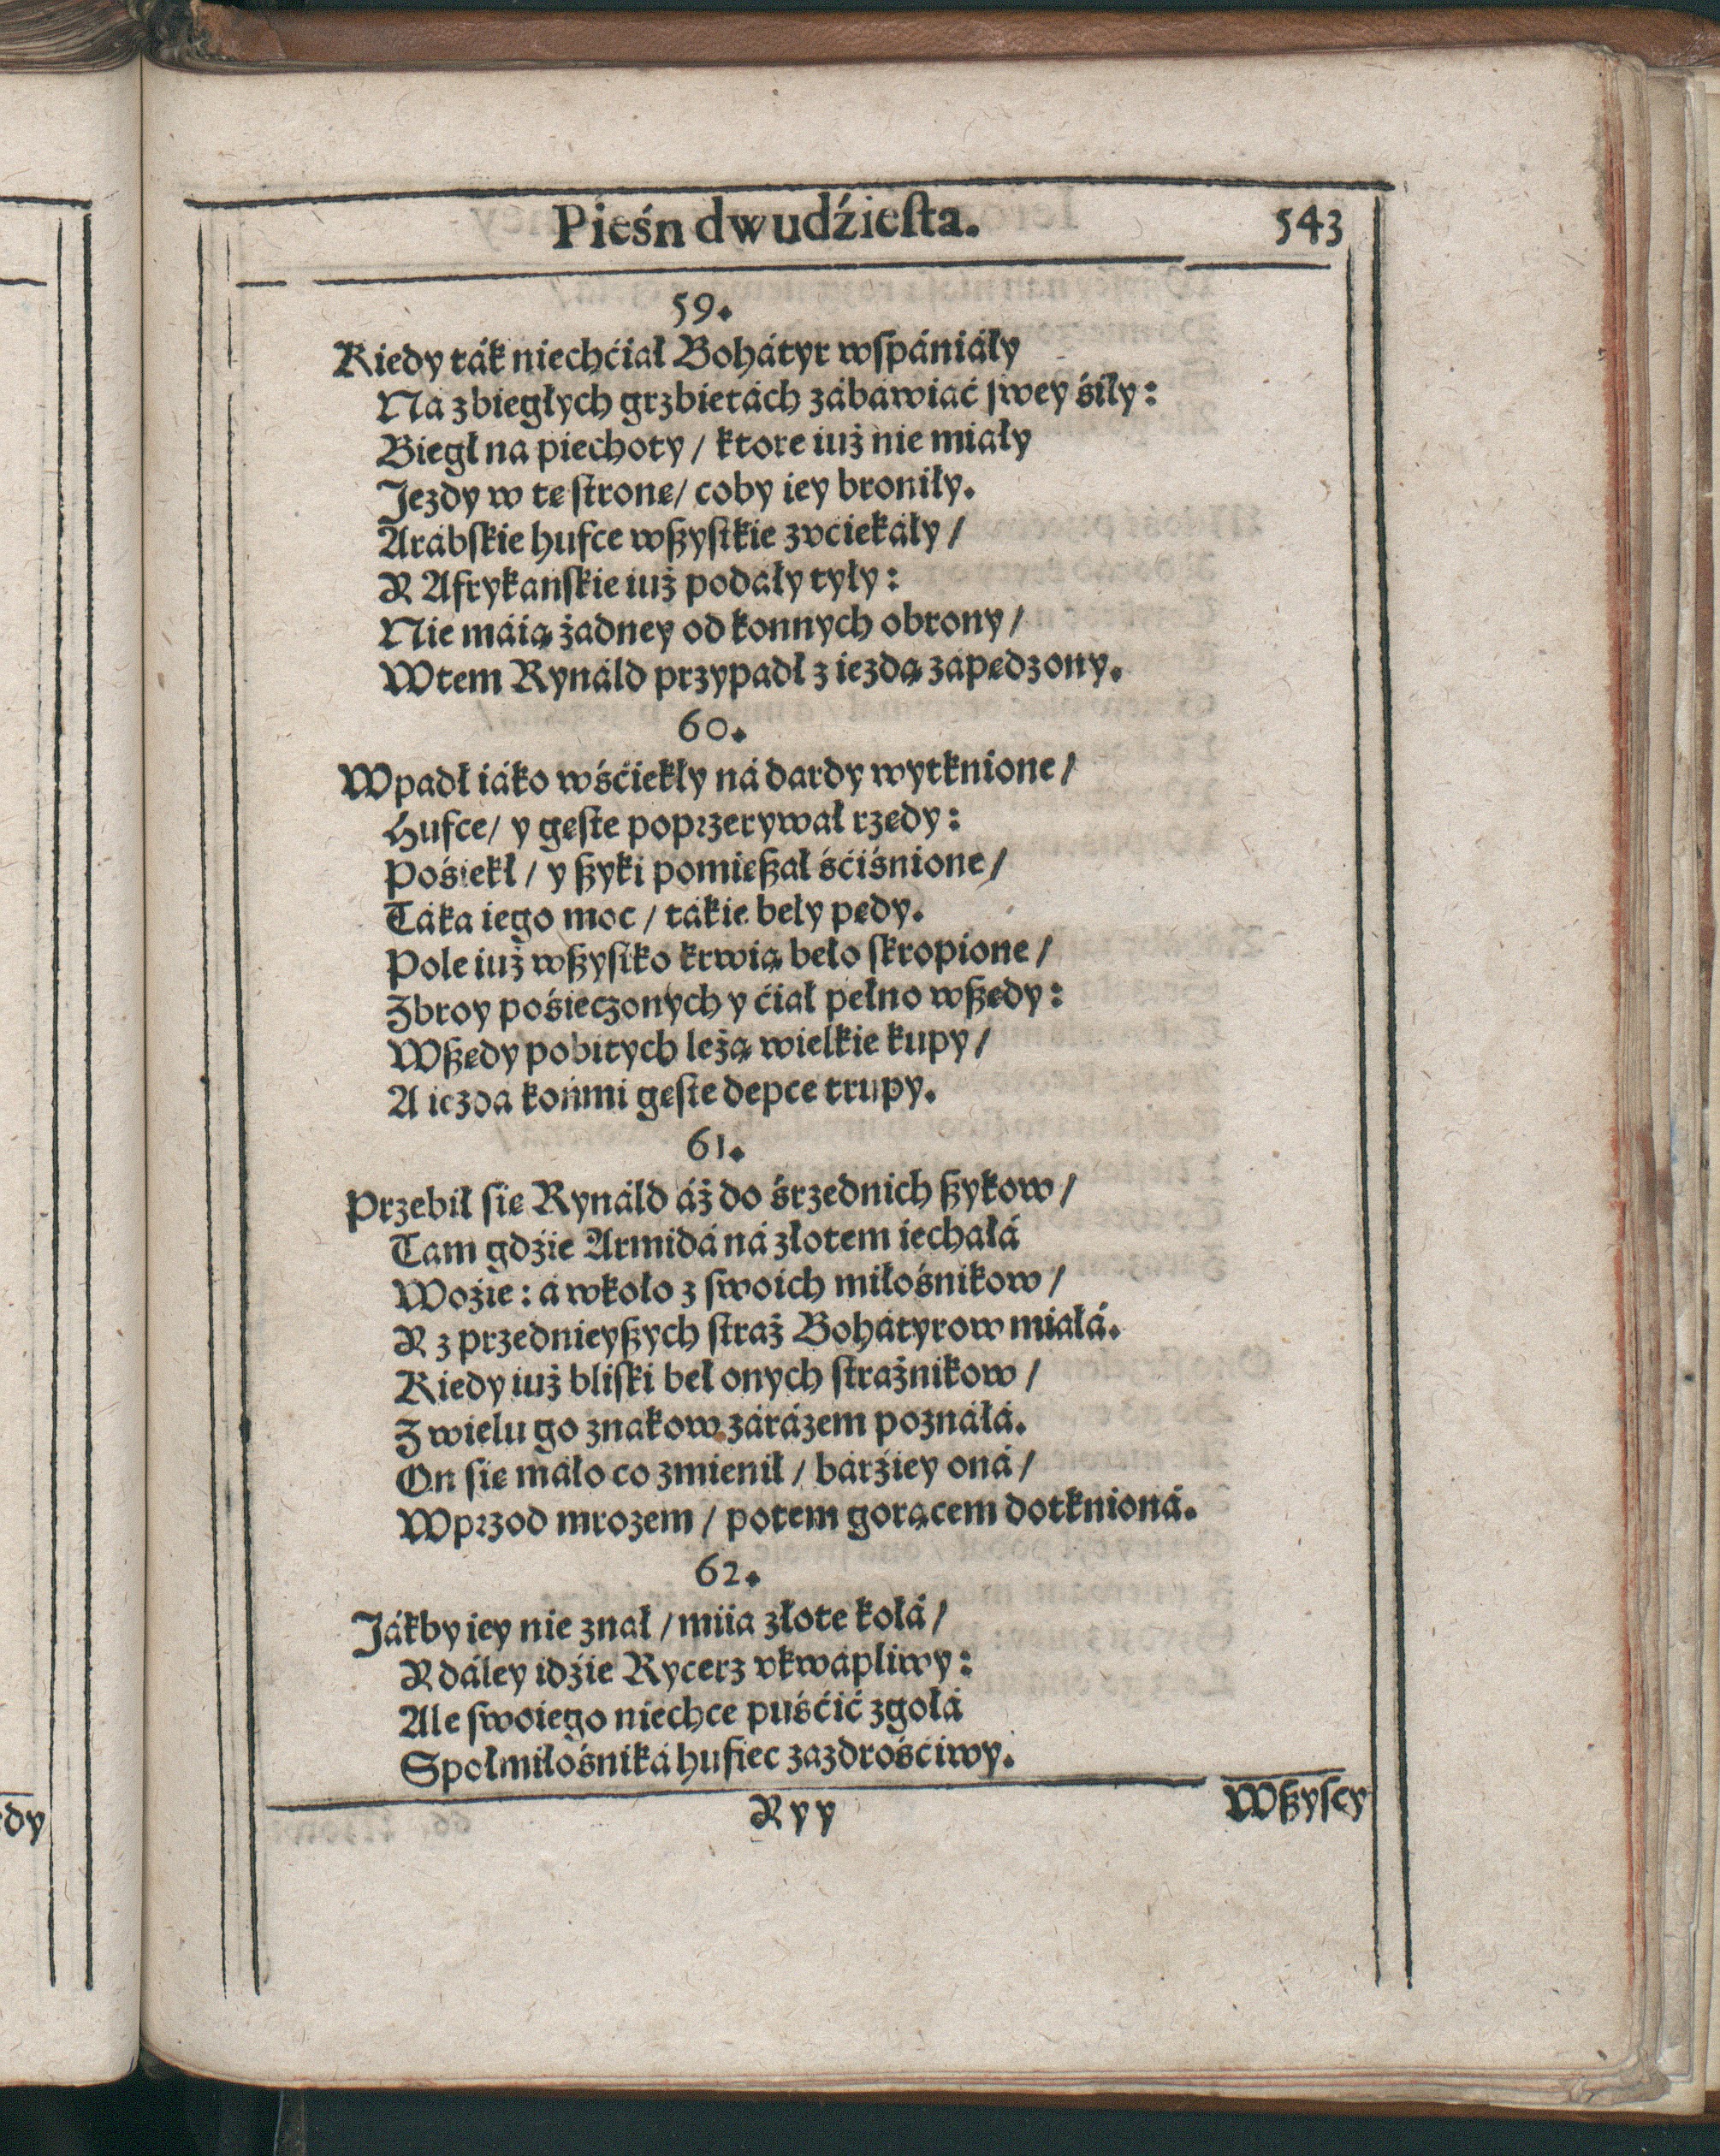 Pieśn dwudźieſta.
543
59.
Kiedy ták niechćiał Bohátyr wſpániáły
Ná zbiegłych grzbietách zábáwiáć ſwey śiły:
Biegł na piechoty / ktore iuż nie miáły
Jezdy w tę ſtronę / coby iey broniły.
Arábſkie hufce wſzyſtkie zvciekáły /
Y Afrykańſkie iuż podáły tyły:
Nie máią żadney od konnych obrony /
Wtem Rynáld przypadł z iezdą zápędzony.
60.
Wpadł iáko wśćiekły ná dardy wytknione /
Hufce / y gęſte poprzerywał rzędy:
Pośiekł / y ſzyki pomieſzał śćiśnione /
Táka iego moc / tákie beły pędy.
Pole iuż wſzyſtko krwią beło ſkropione /
Zbroy pośieczonych y ćiał pełno wſzędy:
Wſzędy pobitych leżą wielkie kupy /
A iezda końmi gęſte depce trupy.
61.
Przebił ſię Rynáld áż do śrzednich ſzykow /
Tam gdźie Armidá ná złotem iechałá
Woźie: á wkoło z ſwoich miłośnikow /
Y z przednieyſzych ſtraż Bohátyrow miáłá.
Kiedy iuż bliſki beł onych ſtrażnikow /
Z wielu go znakow zárázem poznáłá.
On ſię máło co zmienił / bárźiey oná /
Wprzod mrozem / potem gorącem dotknioná.
62.
Jákby iey nie znał / miia złote kołá /
Y dáley idźie Rycerz vkwápliwy:
Ale ſwoiego niechce puśćić zgołá
Społmiłośniká hufiec zazdrośćiwy.
Ryy
Wſzyſcy
dy